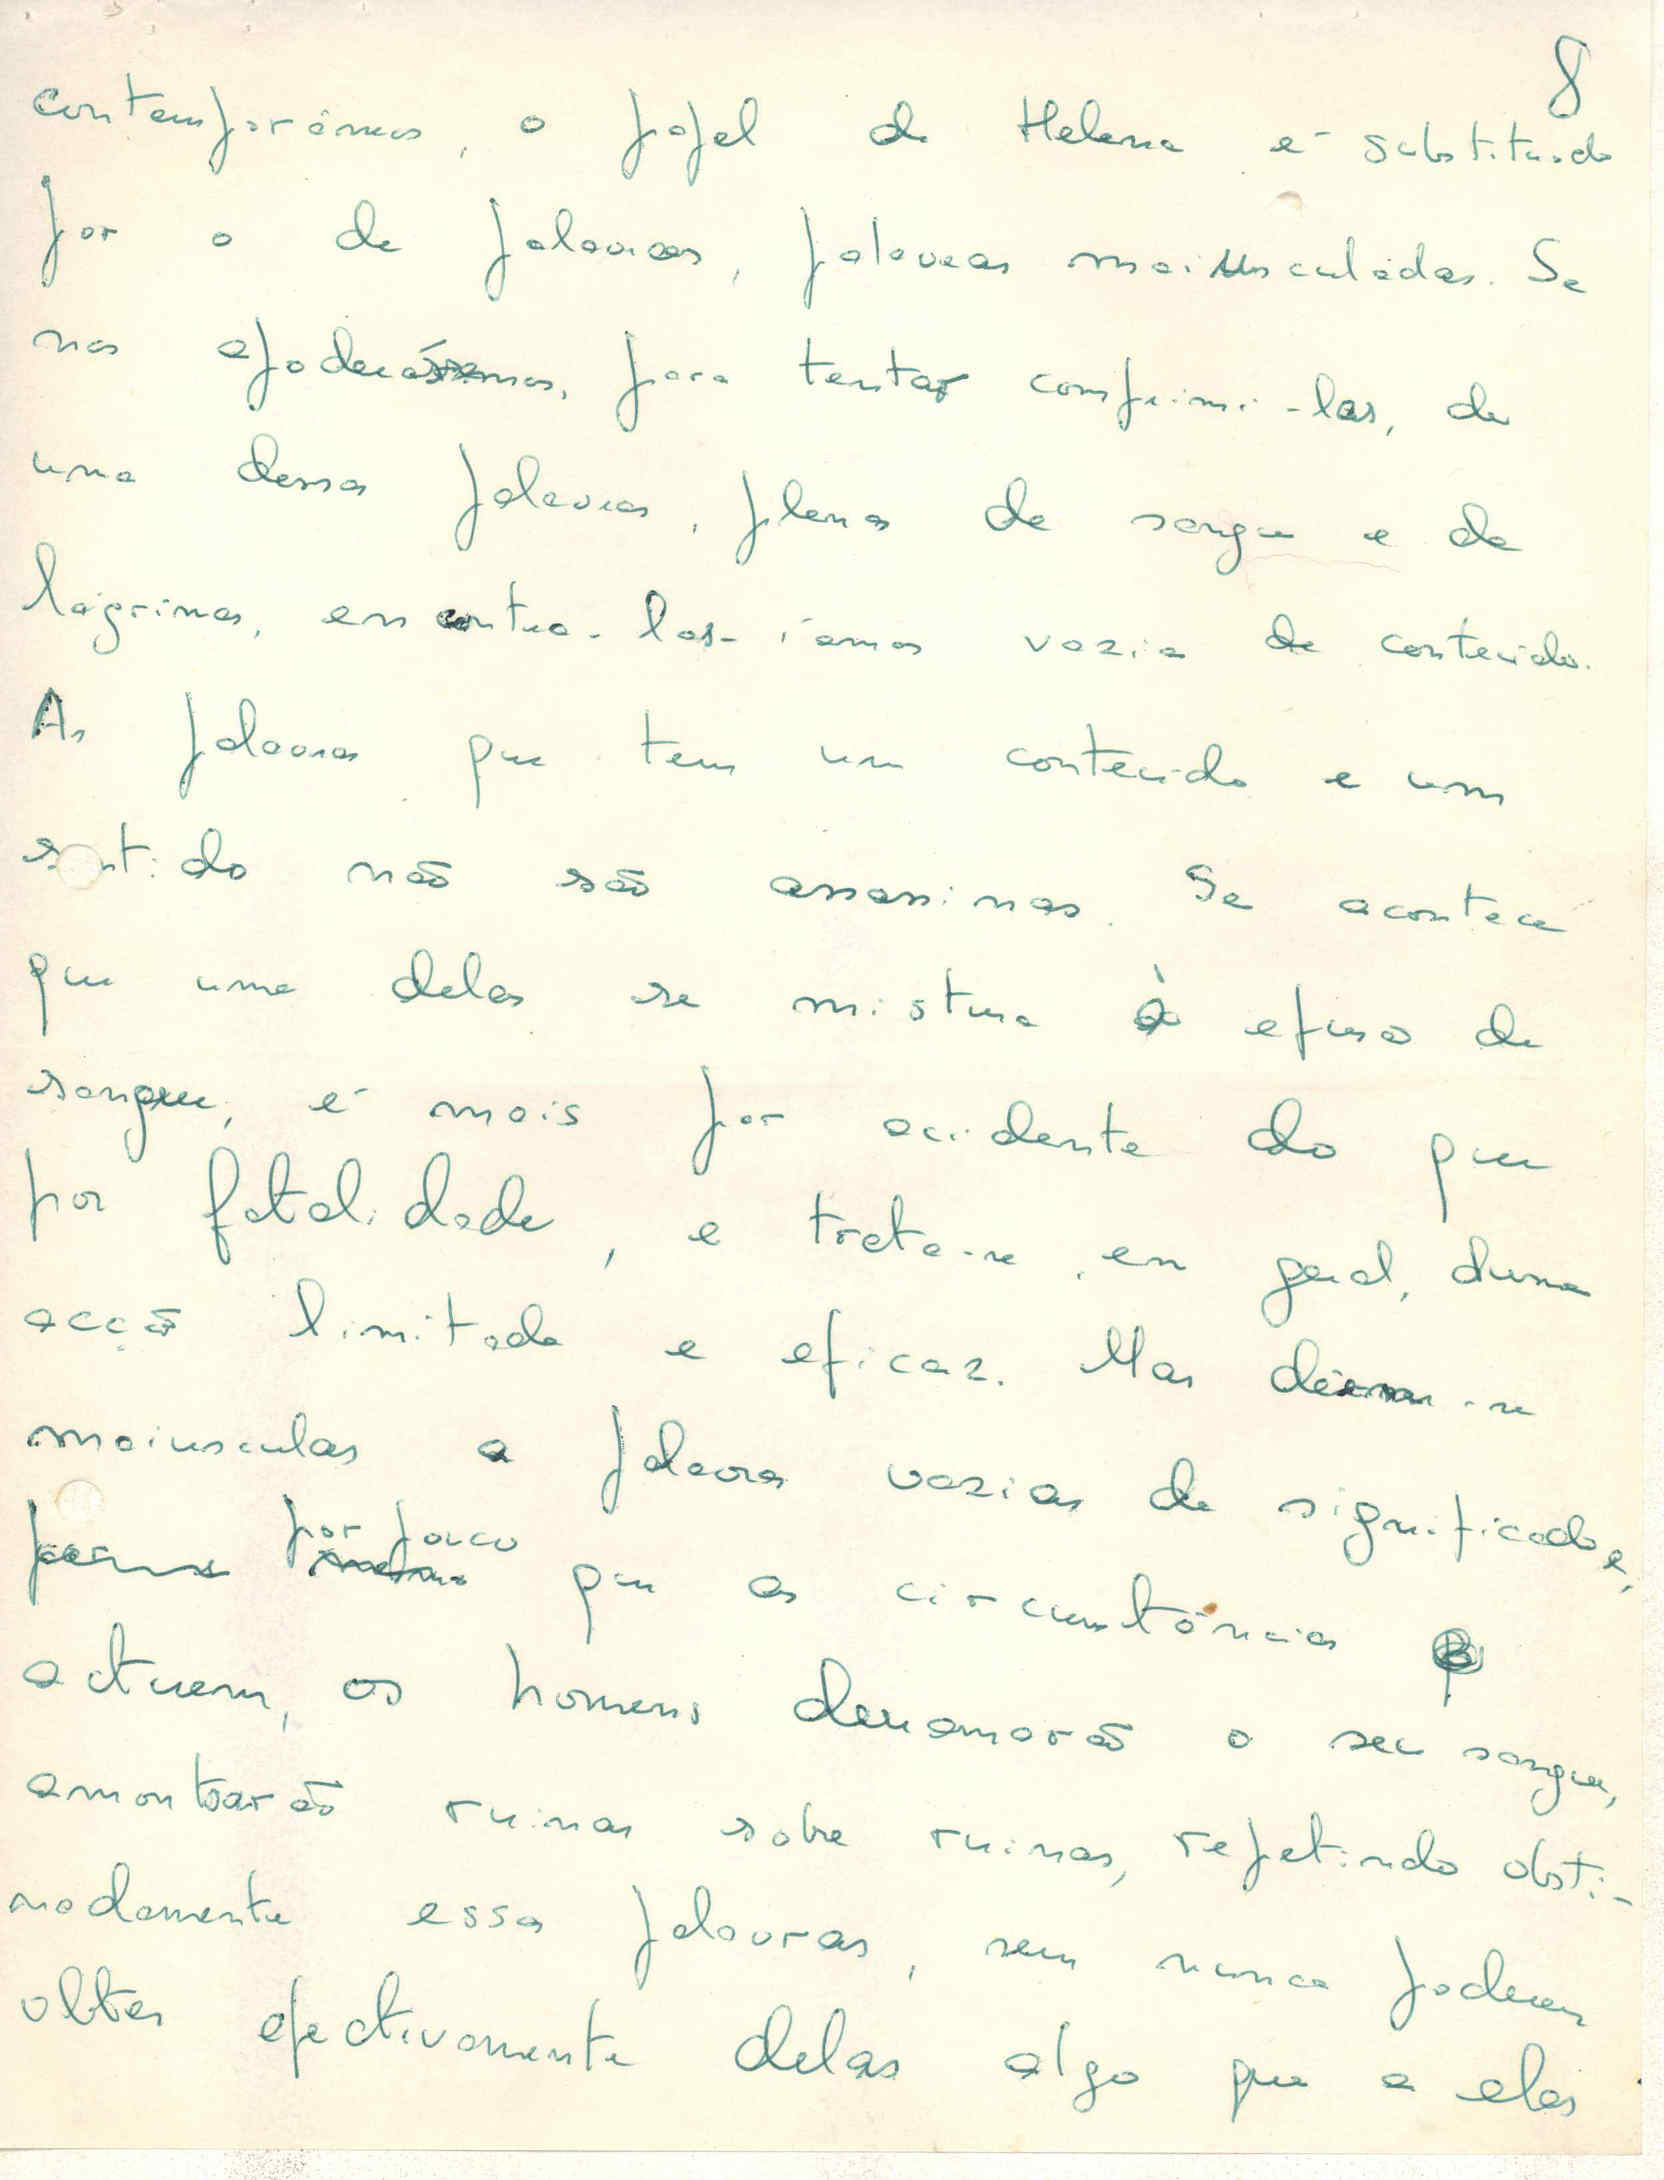 8
contemporâneos, o papel de Helena é substituido
por o de palavras, palavras maiusculadas. Se
nos apoderássemos, para tentar comprimi-las, de
uma dessas palavras, plenas de sangue e de
lágrimas, encontra-las-íamos vazia de conteúdo.
As palavras que tem um conteúdo e um
sentido não são assassinas. Se acontece
que uma delas se mistura à efusão de
sangue, é mais por acidente do que
por fatalidade, e trata-se, em geral, duma
acção limitada e eficaz. Mas dêem-se
maiusculas a palavras vazias de significado e,
por pouco que as circunstâncias
actuem, os homens derramarão o seu sangue,
amontoarão ruinas sobre ruinas, repetindo obsti-
nadamente essas palavras, sem nunca poderem
obter efectivamente delas algo que a elas